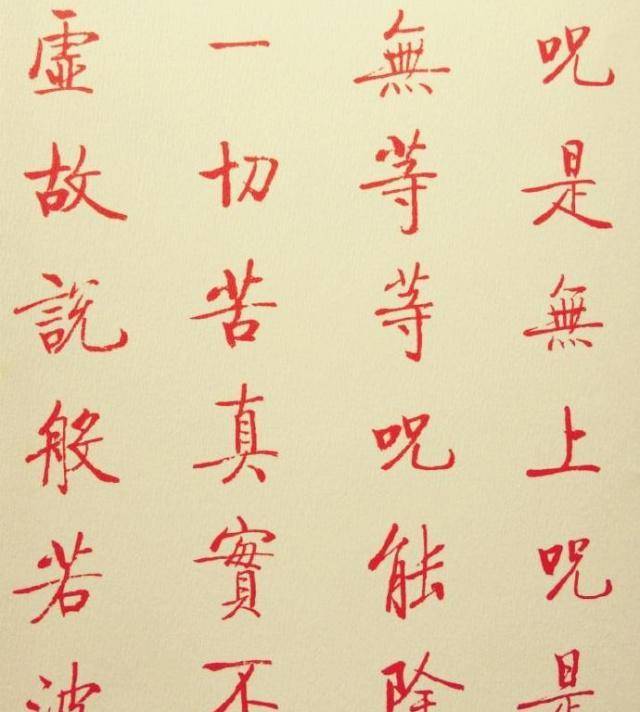 呪是無上呪是
無等等呪能除
一切苦真實不
虛故說般若波